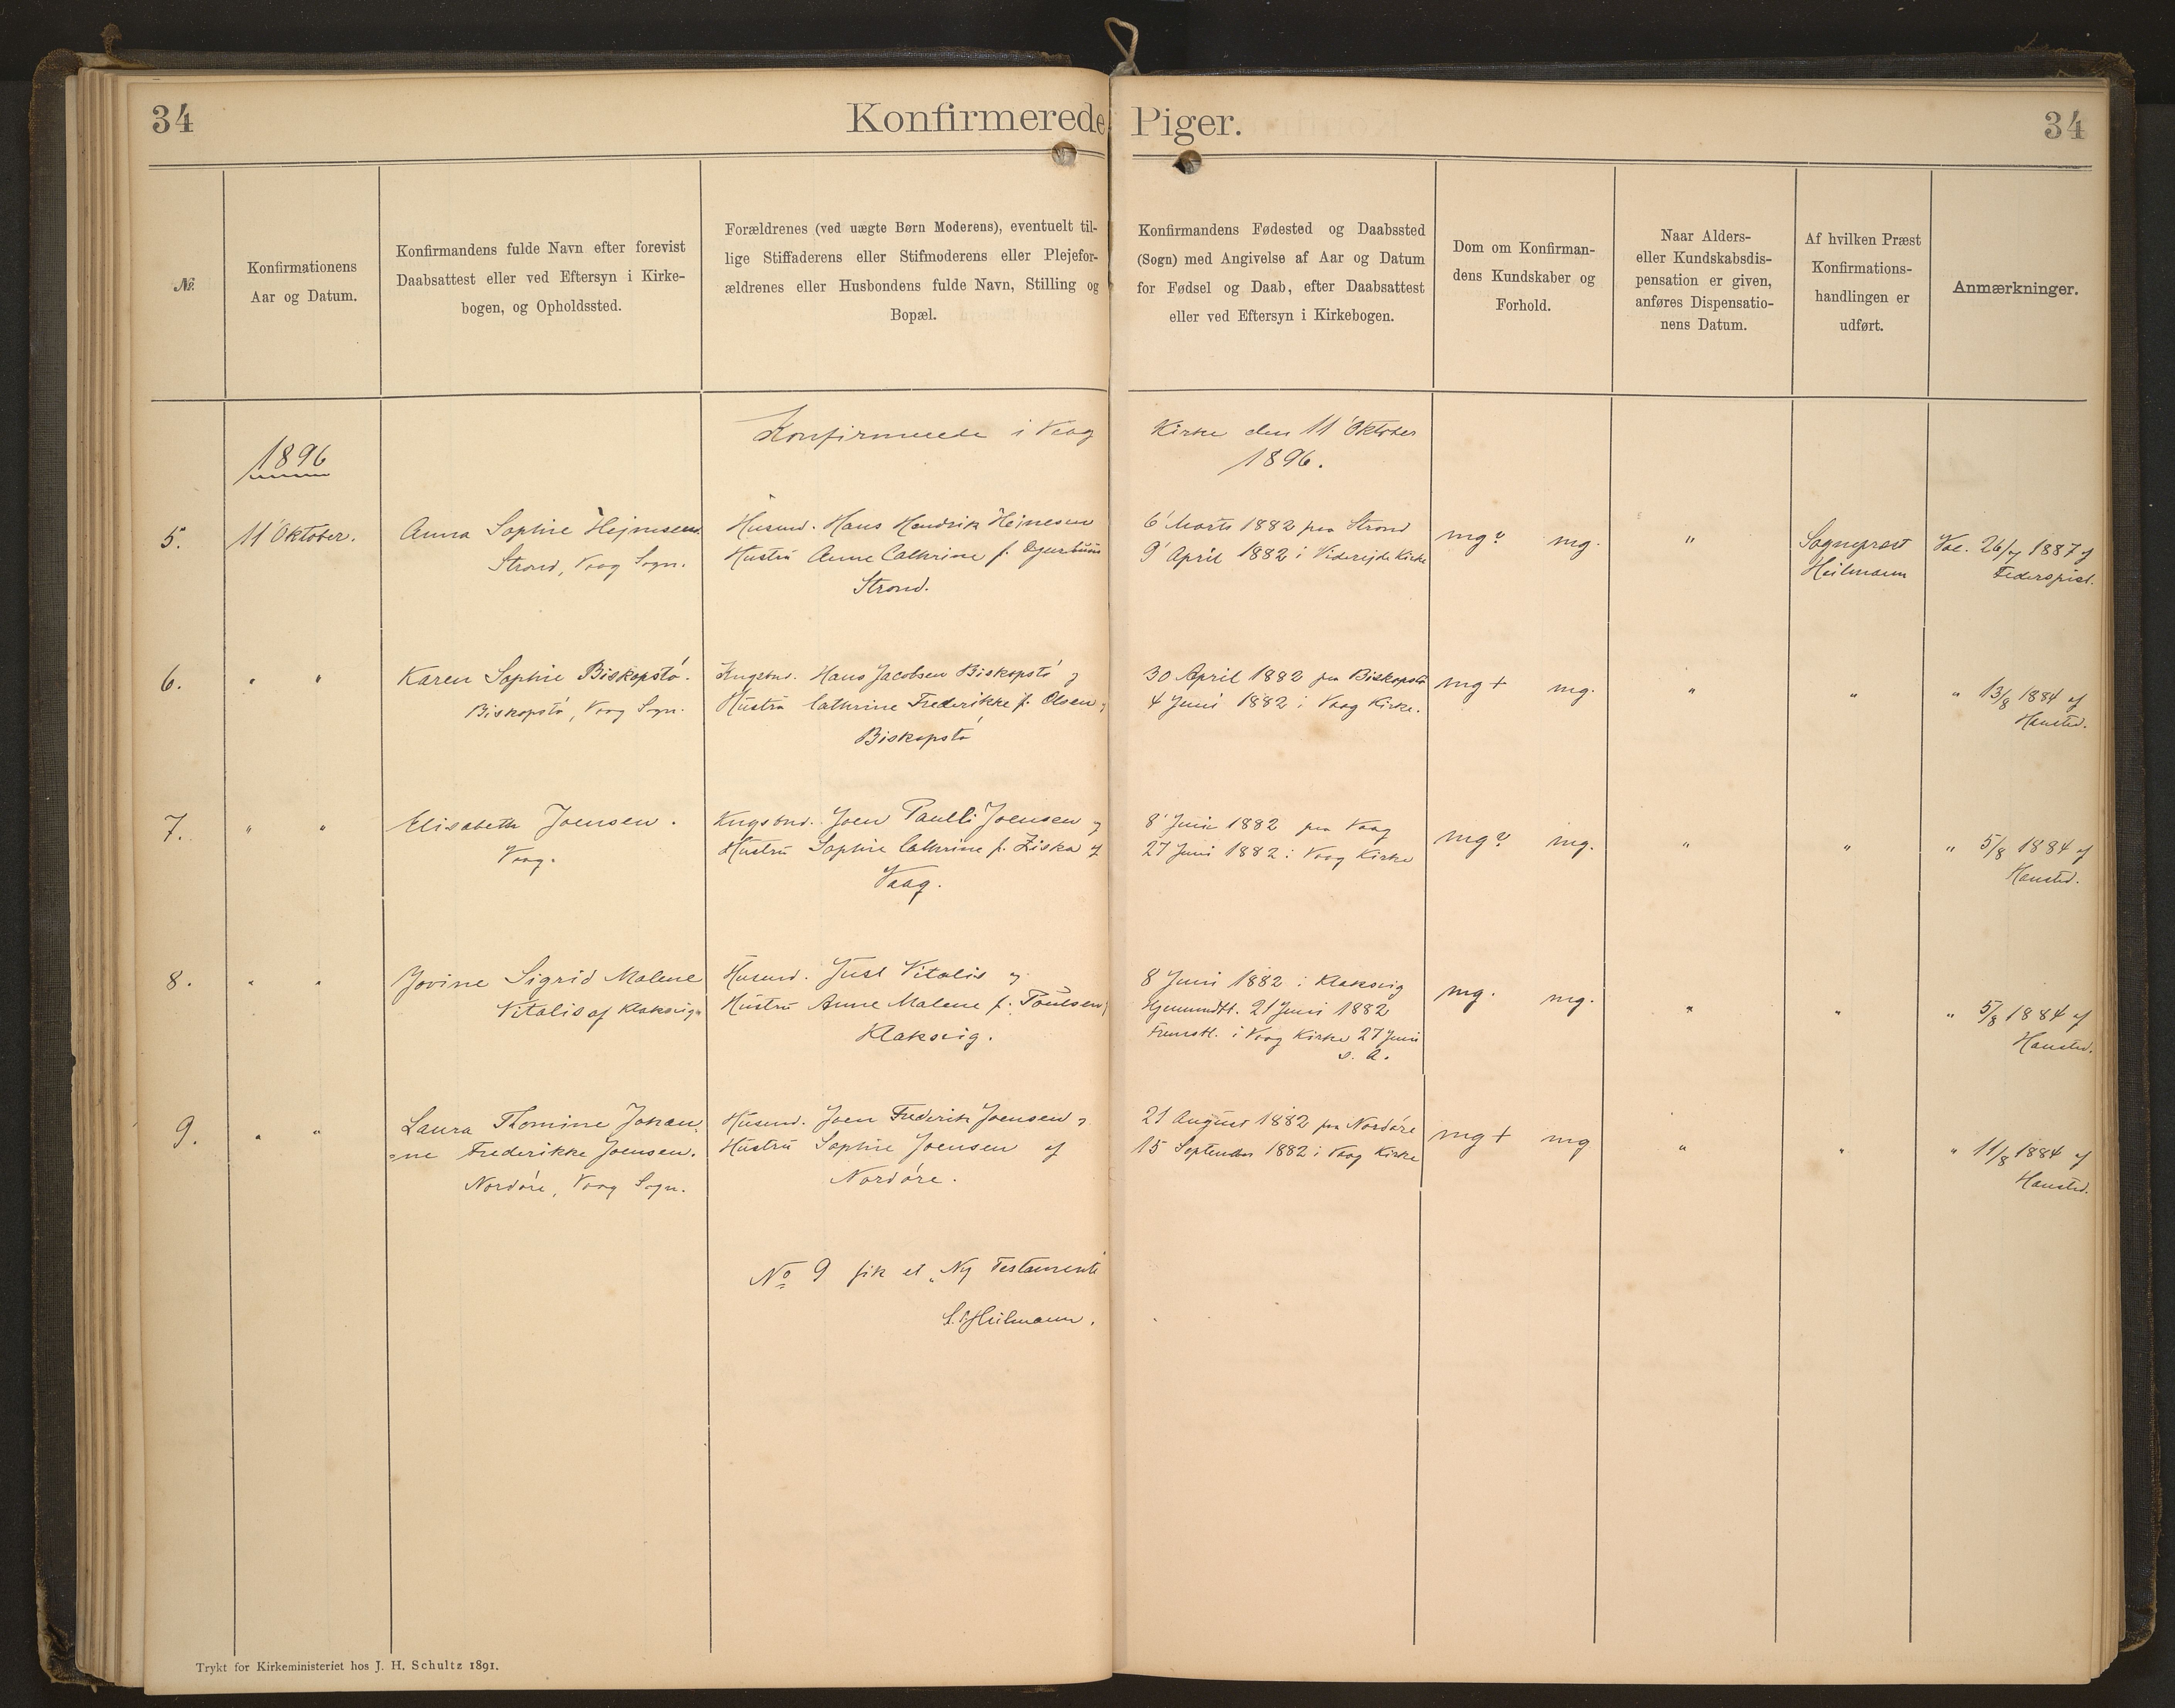 34
Konfirmerede Piger.
34
№.
Konfirmationens
Aar og Datum.
Konfirmandens fulde Navn efter forevist
Daabsattest eller ved Eftersyn i Kirke-
bogen, og Opholdssted.
Forældrenes (ved uægte Børn Moderens), eventuelt til-
lige Stiffaderens eller Stifmoderens eller Plejefor-
ældrenes eller Husbondens fulde Navn, Stilling og
Bopæl.
Konfirmandens Fødested og Daabssted
(Sogn) med Angivelse af Aar og Datum
for Fødsel og Daab, efter Daabsattest
eller ved Eftersyn i Kirkebogen.
Dom om Konfirman-
dens Kundskaber og
Forhold.
Naar Alders-
eller Kundskabsdis-
pensation er given,
anføres Dispensatio-
nens Datum.
Af hvilken Præst
Konfirmations-
handlingen er
udført.
Anmærkninger.
1896
Konfirmerede i Vaag Kirke den 11 Oktober
1896.
5.
11 Oktober.
Anna Sophie Hejnesen
Strond, Vaag Sogn.
Husmd. Hans Hendrik Hejnesen
Hustru Anne Cathrine f.
Strond.
6 Marts 1882 paa Strond
9 April 1882 i Viderejde Kirke
mg? mg.
"
Sognepræst
Heilmann
Vac. 26/7 1887 af
Federspiel.
6.
" "
Karen Sophie Biskopstó.
Biskopstó, Vaag Sogn.
Kngsbnd. Hans Jacobsen Biskopstó og
Hustru Cathrine Frederikke f. Olsen,
Biskopstó
30 April 1882 paa Biskopstó
4 Juni 1882 i Vaag Kirke.
mg+ mg.
"
"
" 13/8 1884 af
Hansted.
7.
" "
Elisabeth Joensen.
Vaag.
Kngsbnd. Joen Paulli Joensen og
Hustru Sophie Cathrine f. Ziska af
Vaag.
8 Juni 1882 paa Vaag
27 Juni 1882 i Vaag Kirke
mg? mg.
"
"
" 5/8 1884 af
Hansted.
8.
" "
Jovine Sigrid Malene
Vitalis af Klaksvig
Husmd. Just Vitalis og
Hustru Anne Malene f. Poulsen,
Klaksvig.
8 Juni 1882 i Klaksvig
Hjemmedtb. 21 Juni 1882
Fremst. i Vaag Kirke 27 Juni
s. A.
mg. mg.
"
"
" 5/8 1884 af
Hansted.
9.
" "
Laura Thomine Johan-
ne Frederikke Joensen.
Nordóre, Vaag Sogn.
Husmd. Joen Frederik Joensen og
Hustru Sophie Joensen af
Nordóre.
21 August 1882 paa Nordóre
15 September 1882 i Vaag Kirke
mg+ mg
"
"
" 11/8 1884 af
Hansted.
No 9 fik et "Ny Testamente
Heilmann.
Trykt for Kirkeministeriet hos J. H. Schultz 1891.